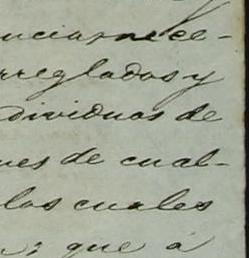 ncias, nece-
rreglados y
dividuos de
nes de cual-
los cuales
que á